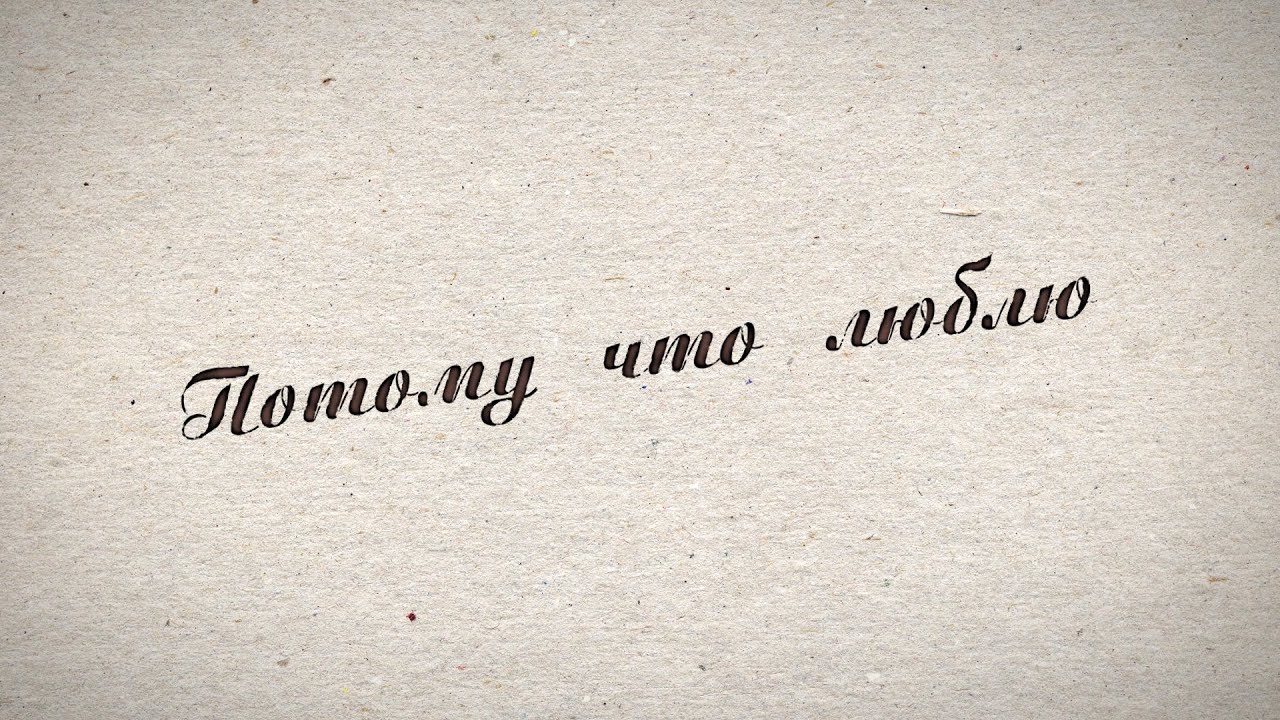 Потому что люблю